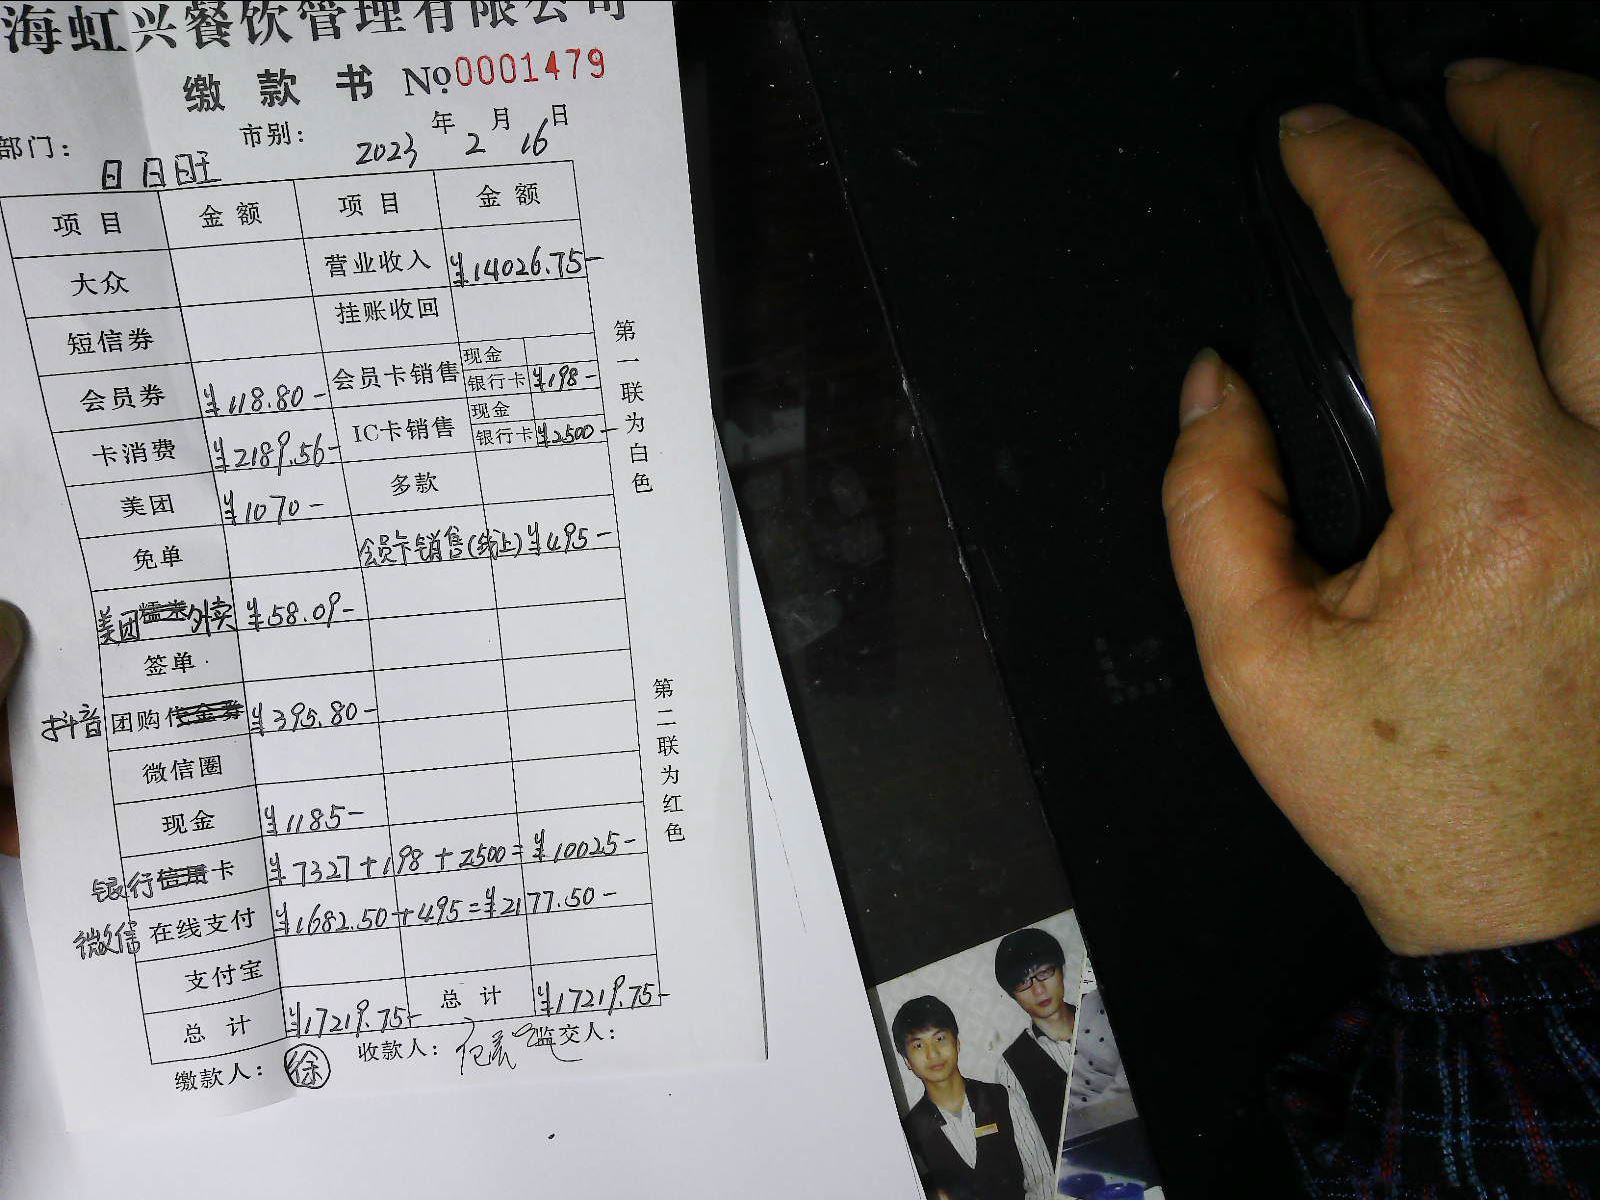 海虹兴餐饮管理有限公司
缴款书 №0001479
部门: 日日旺 市别: 2023年2月16日
项目 金额 项目 金额
大众 营业收入 ¥14026.75-
短信券 挂账收回
会员券 ¥118.80- 会员卡销售 现金
银行卡 ¥198-
卡消费 ¥2189.56- IC卡销售 现金
银行卡 ¥2500-
美团 ¥1070- 多款
免单 会员卡销售(线上) ¥495-
美团外卖 ¥58.09-
签单
抖音团购 ¥395.80-
微信圈
现金 ¥1185-
银行卡 ¥7327+198+2500=¥10025-
微信在线支付 ¥1682.50+495=¥2177.50-
支付宝
总计 ¥17219.75- 总计 ¥17219.75-
缴款人: 徐 收款人: 监交人:
第一联为白色
第二联为红色